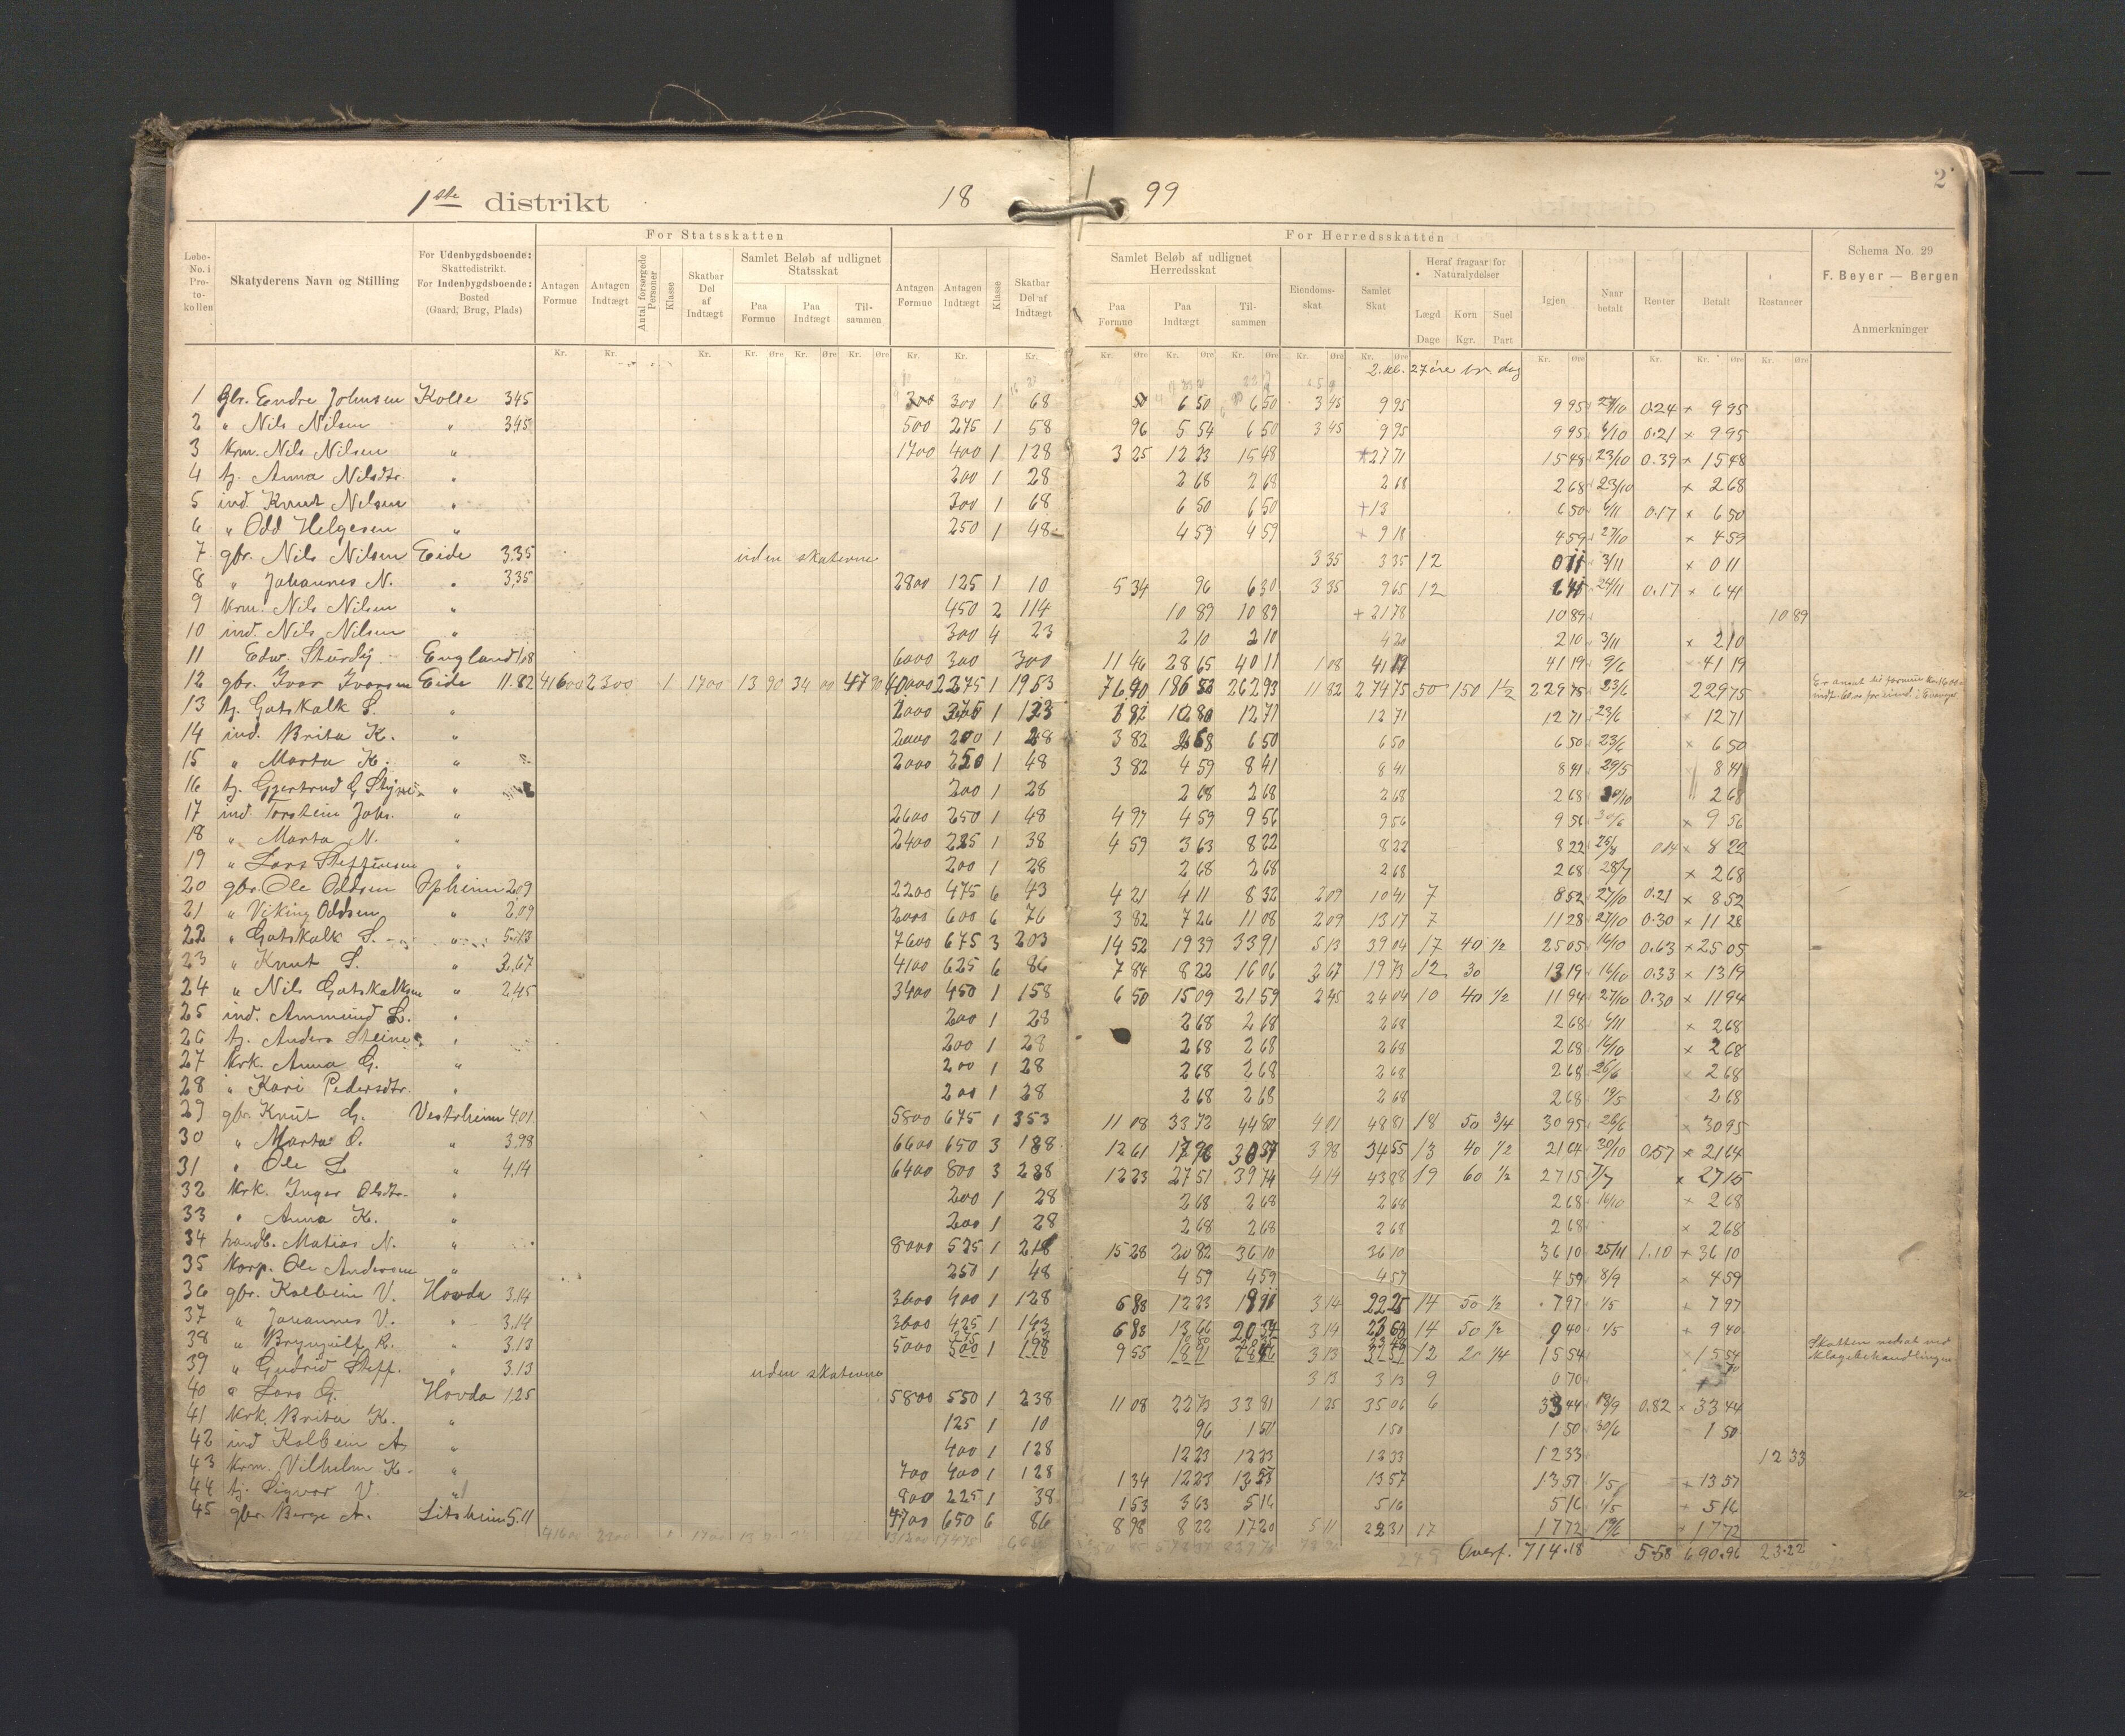 1ste distrikt 18 99 2
For Statsskatten For Herredsskatten
Løbe-No. i Pro-to-kollen Skatyderens Navn og Stilling For Udenbygdsboende: Skattedistrikt. For Indenbygdsboende: Bosted (Gaard, Brug, Plads) Antagen Formue Antagen Indtægt Antal forsørgede Personer Klasse Skatbar Del af Indtægt Samlet Beløb af udlignet Statsskat Paa Formue Paa Indtægt Til-sammen Antagen Formue Antagen Indtægt Klasse Skatbar Del af Indtægt Samlet Beløb af udlignet Herredsskat Paa Formue Paa Indtægt Til-sammen Eiendoms-skat Samlet Skat Heraf fragaar for Naturalydelser Lægd Dage Korn Kgr. Suel Part Igjen Naar betalt Renter Betalt Restancer Schema No. 29 F. Beyer — Bergen Anmerkninger
Kr. Kr. Kr. Kr. Øre Kr. Øre Kr. Øre Kr. Kr. Kr. Kr. Øre Kr. Øre Kr. Øre Kr. Øre Kr. Øre Kr. Øre Kr. Kr. Øre Kr. Øre
27 øre pr. dag
1 gbr. Endre Johnsen Kolle 345 300 300 1 68 6 50 6 50 3 45 9 95 9 95 0.24 × 9 95
2 " Nils Nilsen " 345 500 275 1 58 96 5 54 6 50 3 45 9 95 9 95 6/10 0.21 × 9 95
3 krm. Nils Nilsen " 1700 400 1 128 3 25 12 23 15 48 +27 71 15 48 23/10 0.39 × 15 48
4 tj. Anna Nilsdtr. " 200 1 28 2 68 2 68 2 68 2 68 23/10 × 2 68
5 ind. Knut Nilsen " 300 1 68 6 50 6 50 +13 6 50 6/11 0.17 × 6 50
6 " Odd Helgesen " 250 1 48 4 59 4 59 + 9 18 4 59 27/10 × 4 59
7 gbr. Nils Nilsen Eide 3.35 uden skatevne 3 35 3 35 12 0 11 3/11 × 0 11
8 " Johannes N. " 3,35 2800 125 1 10 5 34 96 6 30 3 35 9 65 12 6 41 24/11 0.17 × 6 41
9 krm. Nils Nilsen " 450 2 114 10 89 10 89 + 21 78 10 89 10 89
10 ind. Nils Nilsen " 300 4 23 2 10 2 10 4 20 2 10 3/11 × 2 10
11 Edw. Sturdy England 1,08 6000 300 300 11 46 28 65 40 11 1 08 41 19 41 19 9/6 41 19
12 gbr. Ivar Ivarsen Eide 11.82 41600 2300 1 1700 13 90 34 00 47 90 40000 2275 1 1953 76 40 186 53 262 93 11 82 274 75 50 150 1½ 229 75 23/6 229 75
13 tj. Gotskalk S. " 2000 1 2 82 12 71 12 71 12 71 23/6 12 71
14 ind. Brita K. " 2000 200 1 28 3 82 2 68 6 50 6 50 6 50 23/6 × 6 50
15 " Marta K. " 2000 250 1 48 3 82 4 59 8 41 8 41 8 41 29/5 8 41
16 tj. Gjertrud G. " 200 1 28 2 68 2 68 2 68 2 68 2 68
17 ind. Torstein Johs. " 2600 250 1 48 4 97 4 59 9 56 9 56 9 56 30/6 × 9 56
18 " Marta N. " 2400 225 1 38 4 59 3 63 8 22 8 22 8 22 0.14 × 8 22
19 " Lars Steffensen " 200 1 28 2 68 2 68 2 68 2 68 28/7 × 2 68
20 gbr. Ole Oddsen Opheim 2,09 2200 475 6 43 4 21 4 11 8 32 2 09 10 41 7 8 52 27/10 0.21 × 8 52
21 " Viking Oddsen " 2,09 2000 600 6 76 3 82 7 26 11 08 2 09 13 17 7 11 28 27/10 0.30 × 11 28
22 " Gotskalk S. " 5.13 7600 675 3 203 14 52 19 39 33 91 5 13 39 04 17 40 ½ 25 05 16/10 0.63 × 25 05
23 " Knut S. " 3,67 4100 625 6 86 7 84 8 22 16 06 3 67 19 73 12 30 13 19 16/10 0.33 × 13 19
24 " Nils Gotskalksen " 2,45 3400 450 1 158 6 50 15 09 21 59 2 45 24 04 10 40 ½ 11 94 27/10 0.30 × 11 94
25 ind. Ammund L. " 200 1 28 2 68 2 68 2 68 2 68 6/11 × 2 68
26 tj. Anders " 200 1 28 2 68 2 68 2 68 2 68 16/10 × 2 68
27 krk. Anna G. " 200 1 28 2 68 2 68 2 68 2 68 26/6 2 68
28 " Kari Pedersdtr. " 200 1 28 2 68 2 68 2 68 2 68 19/5 2 68
29 gbr. Knut G. Vestrheim 4,01 5800 675 1 353 11 08 33 72 44 80 4 01 48 81 18 50 3/4 30 95 26/6 × 30 95
30 " Marta O. " 3.98 6600 650 3 188 12 61 17 96 30 57 3 98 34 55 13 40 ½ 21 64 30/10 0.57 × 21 64
31 " Ole L. " 4,14 6400 800 3 288 12 23 27 51 39 74 4 14 43 88 19 60 ½ 27 15 7/7 × 27 15
32 krk. Inger Olsdtr. " 200 1 28 2 68 2 68 2 68 2 68 16/10 × 2 68
33 " Anna K. " 200 1 28 2 68 2 68 2 68 2 68 × 2 68
34 handl. Matias N. " 8000 525 1 218 15 28 20 82 36 10 36 10 36 10 25/11 1.10 × 36 10
35 korp. Ole Andersen " 250 1 48 4 59 4 59 4 59 4 59 8/9 × 4 59
36 gbr. Kolbein V. Hovda 3,14 3600 400 1 128 6 88 12 23 19 11 3 14 22 25 14 50 ½ 7 97 1/5 7 97
37 " Johannes V. " 3,14 3600 425 1 143 6 88 13 66 20 54 3 14 23 68 14 50 ½ 9 40 1/5 + 9 40
38 " Brynjulf R. " 3.13 5000 500 1 198 9 55 18 91 28 46 3 13 31 59 12 20 ¼ 15 54 15 54 Skatten nedsat ved Klagebehandlingen
39 " Gudrid Steff. " 3.13 uden skatevne 3 13 3 13 9 0 70 70
40 " Lars G. Hovda 1,25 5800 550 1 238 11 08 22 73 33 81 1 25 35 06 6 33 44 18/9 0.82 × 33 44
41 krk. Brita K. " 125 1 10 96 1 50 1 50 1 50 30/6 1 50
42 ind. Kolbein A. " 400 1 128 12 23 12 33 12 33 12 33 12 33
43 krm. Vilhelm K. " 700 400 1 128 1 34 12 23 13 57 13 57 13 57 1/5 + 13 57
44 tj. Sigvor V. " 800 225 1 38 1 53 3 63 5 16 5 16 5 16 1/5 + 5 16
45 gbr. Børge A. Litsheim 5.11 4700 650 6 86 8 98 8 22 17 20 5 11 22 31 17 17 72 19/6 + 17 72
41600 2300 1 1700 Overf. 714.18 5.58 690.96 23.22